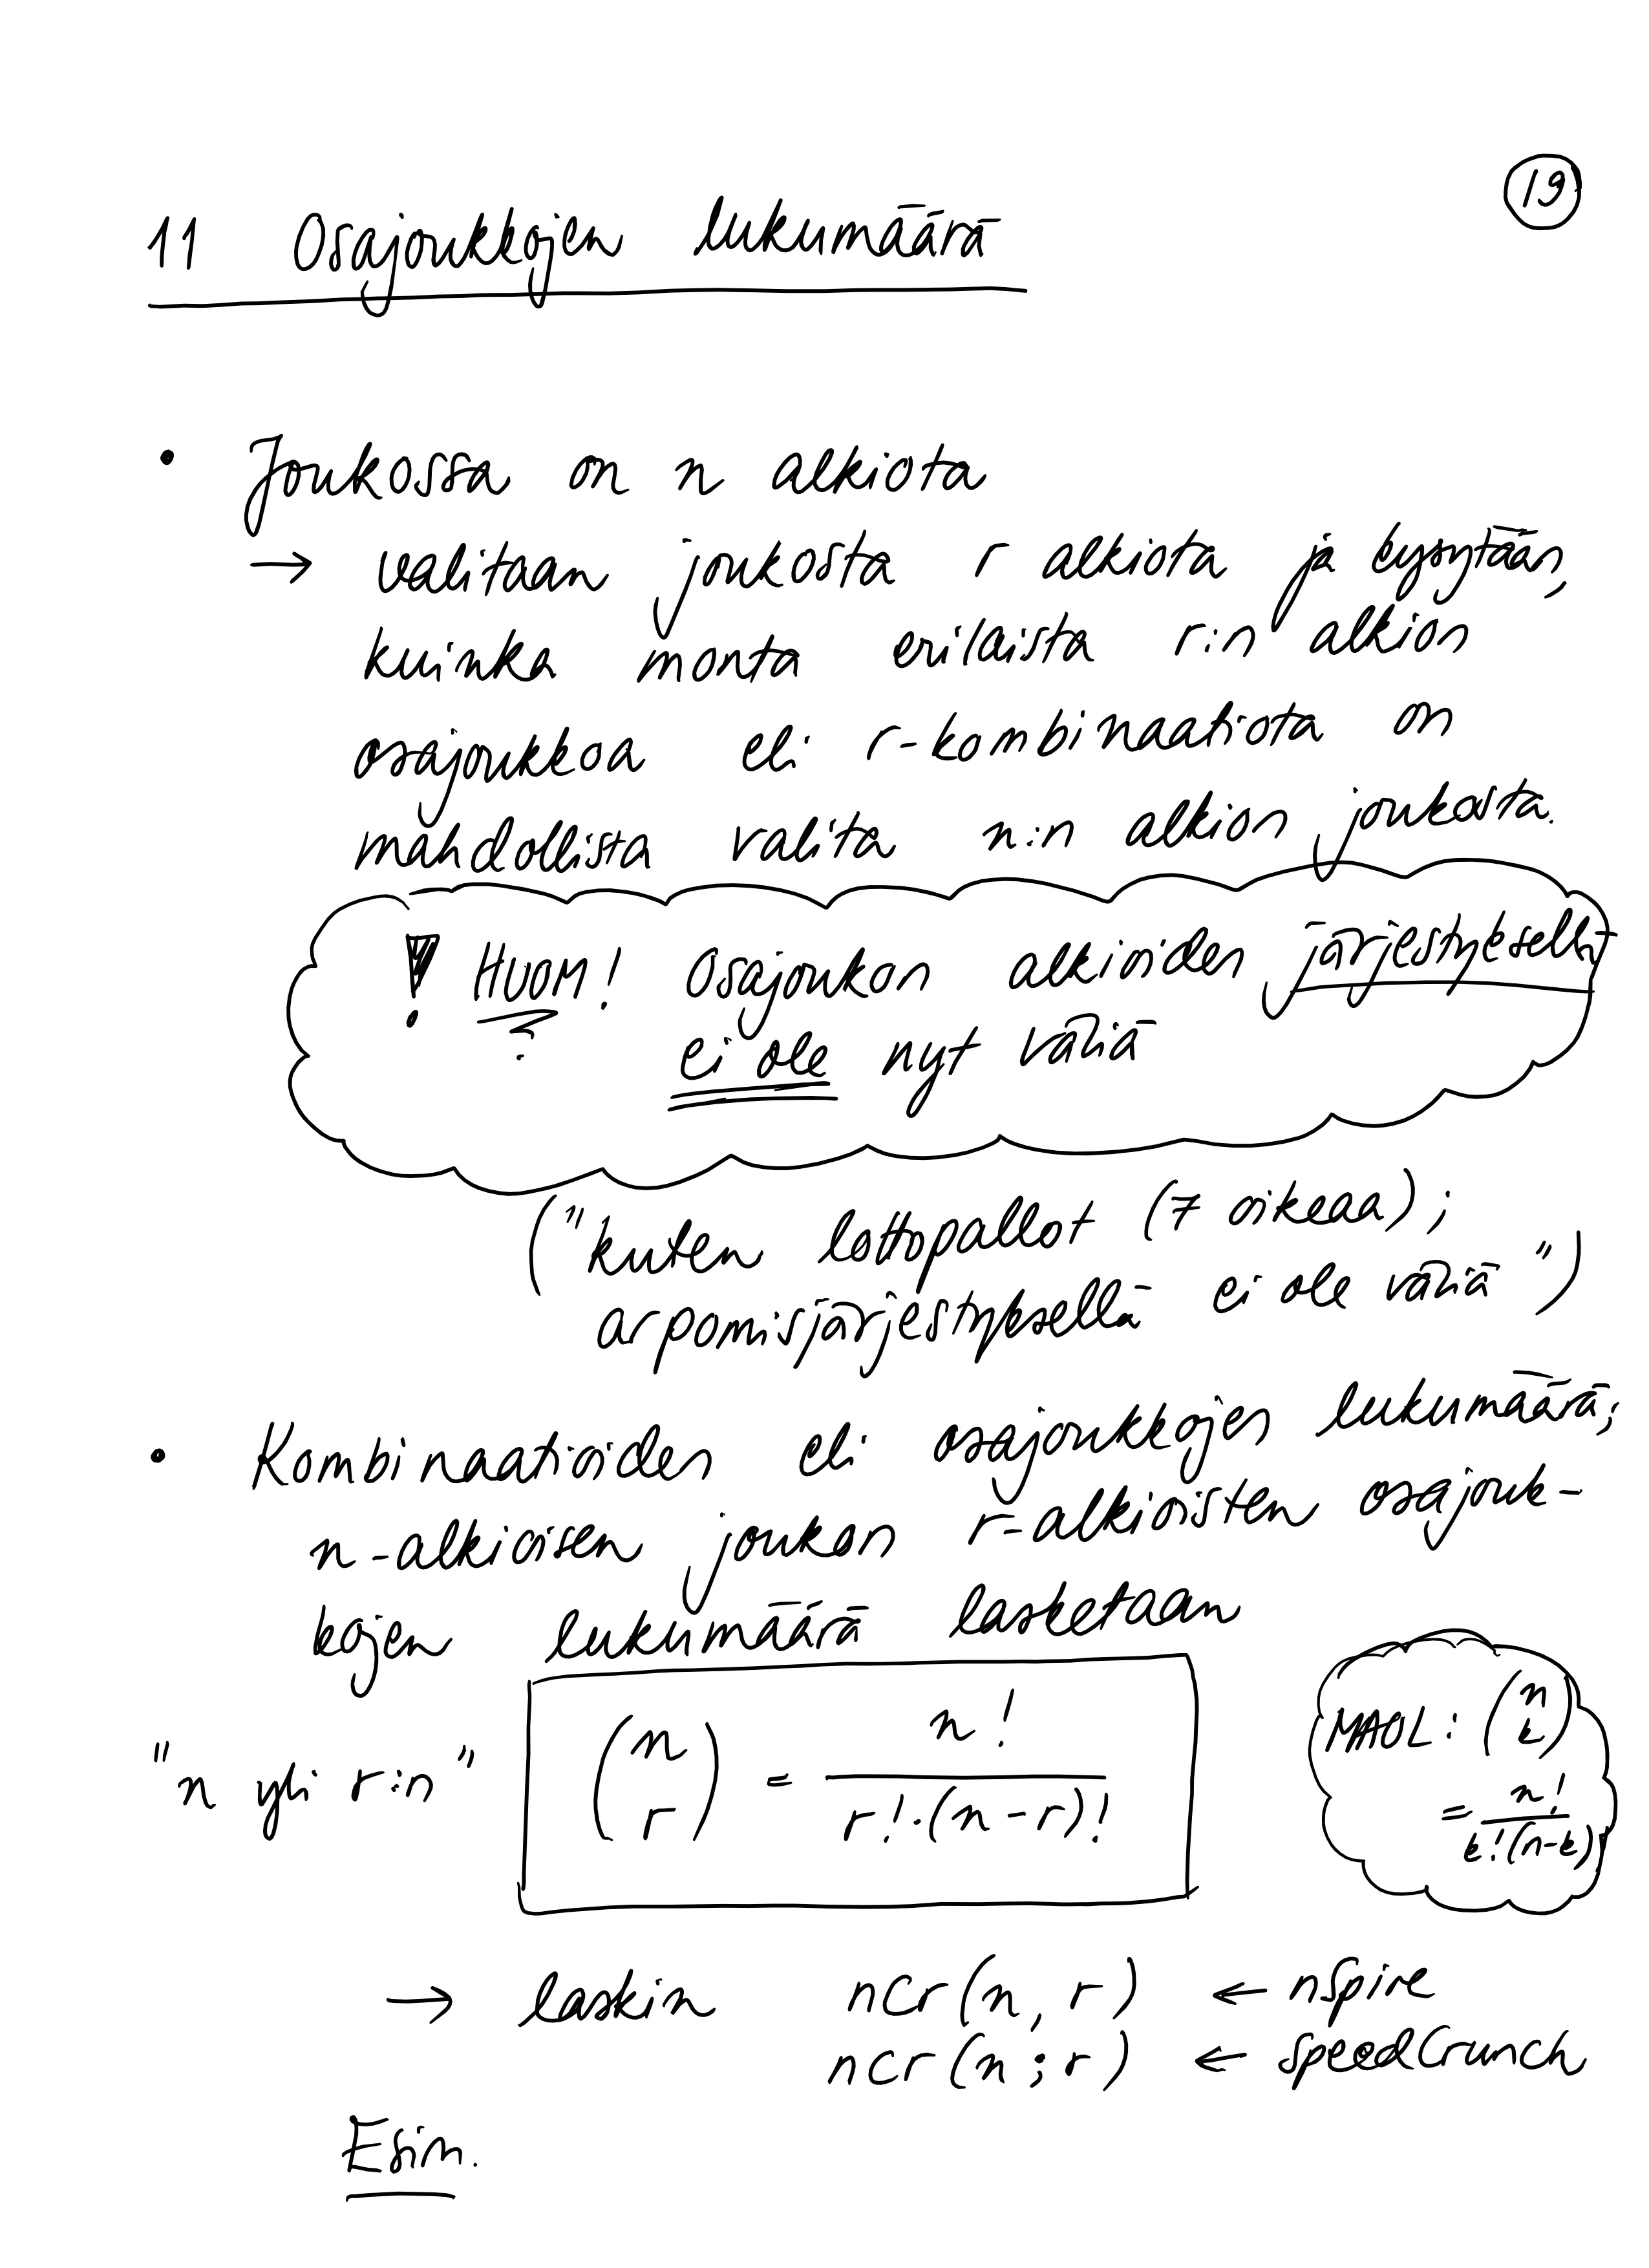 19
11 Osajoukkojen lukumäärä
• Joukossa on n alkiota
→ valitaan joukosta r alkiota ja kysytään,
kuinka monta erilaista r:n alkion
osajoukkoa eli r-kombinaatiota on
mahdollista valita n:n alkion joukosta.
! HUOM! Osajoukon alkioiden järjestyksellä
ei ole nyt väliä
("kuten lottopallot (7 oikeaa);
arpomisjärjestyksellä ei ole väliä")
• Kombinaatioiden eli osajoukkojen lukumäärä;
n-alkioisen joukon r-alkioisten osajouk-
kojen lukumäärä lasketaan
"n yli r:n" (n r) = n! / r!·(n-r)!
MAOL: (n k)
= n! / k!(n-k)!
→ laskin nCr(n, r) ← nspire
nCr(n; r) ← speedCrunch
Esim.